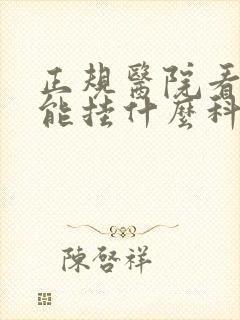 正規醫院看
能挂什麼科
陳啓祥